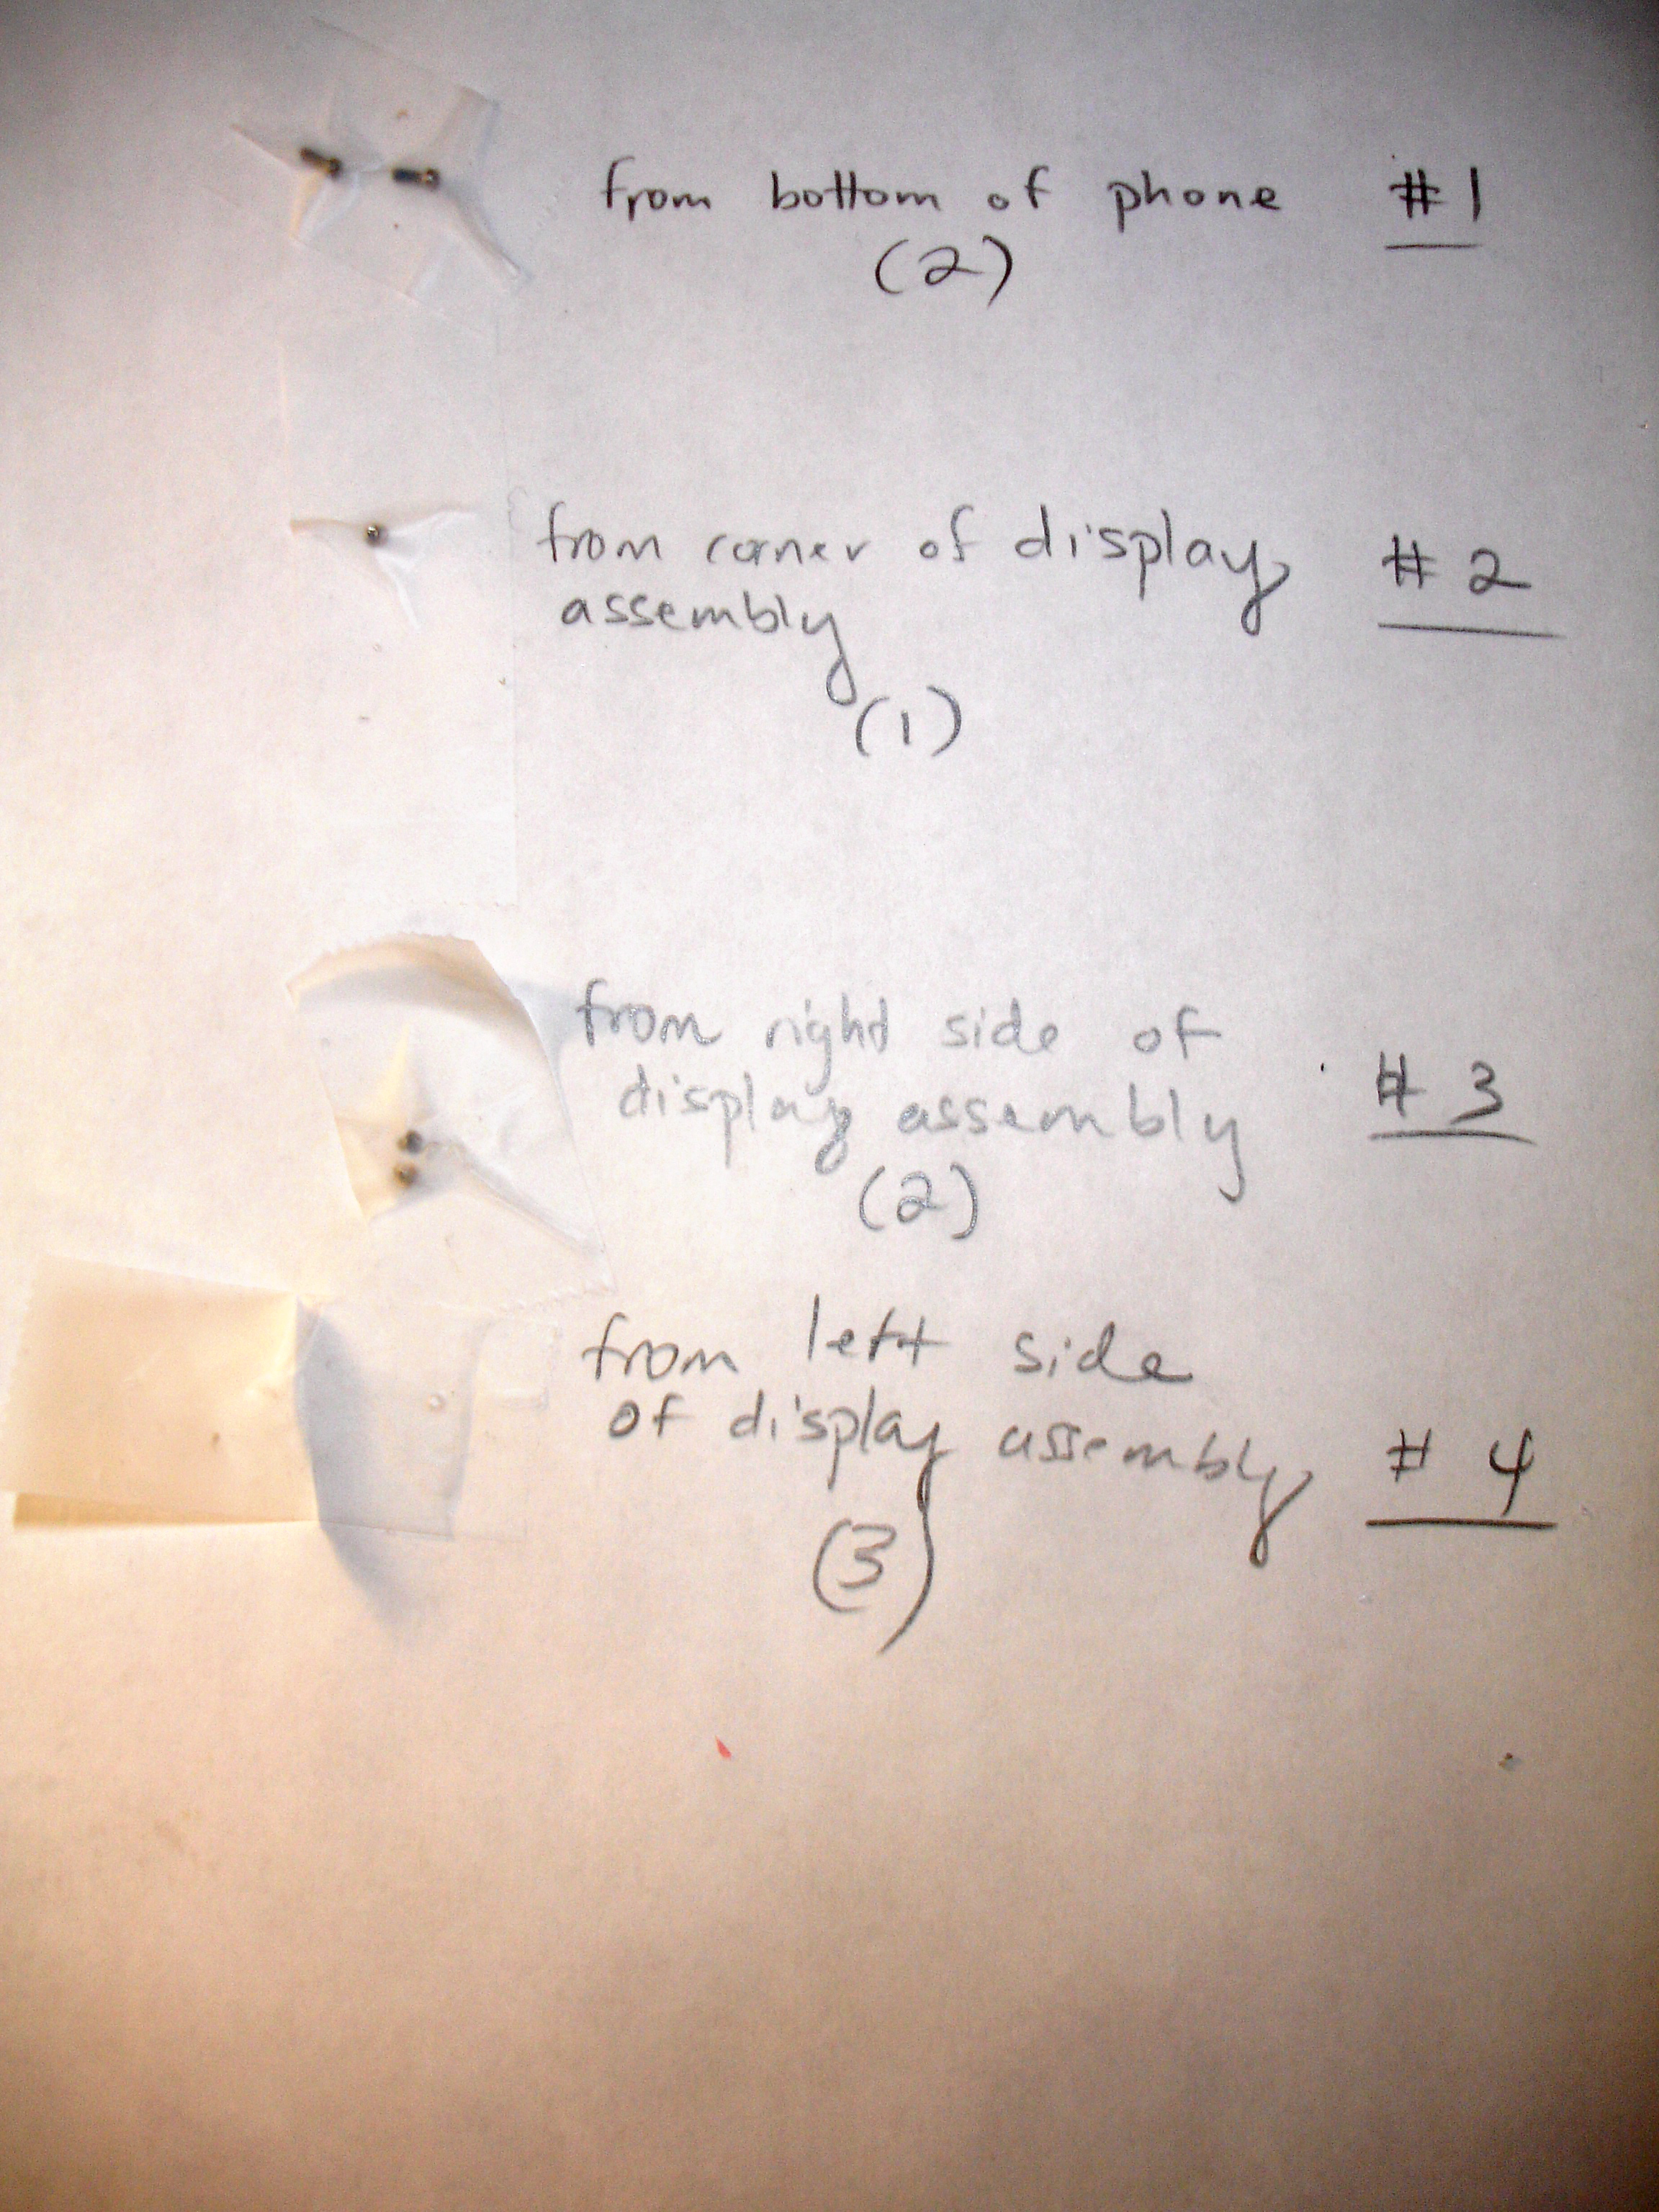 from bottom of phone #1
(2)
from corner of display #2
assembly
(1)
from right side of
display assembly #3
(2)
from left side
of display assembly #4
(3)